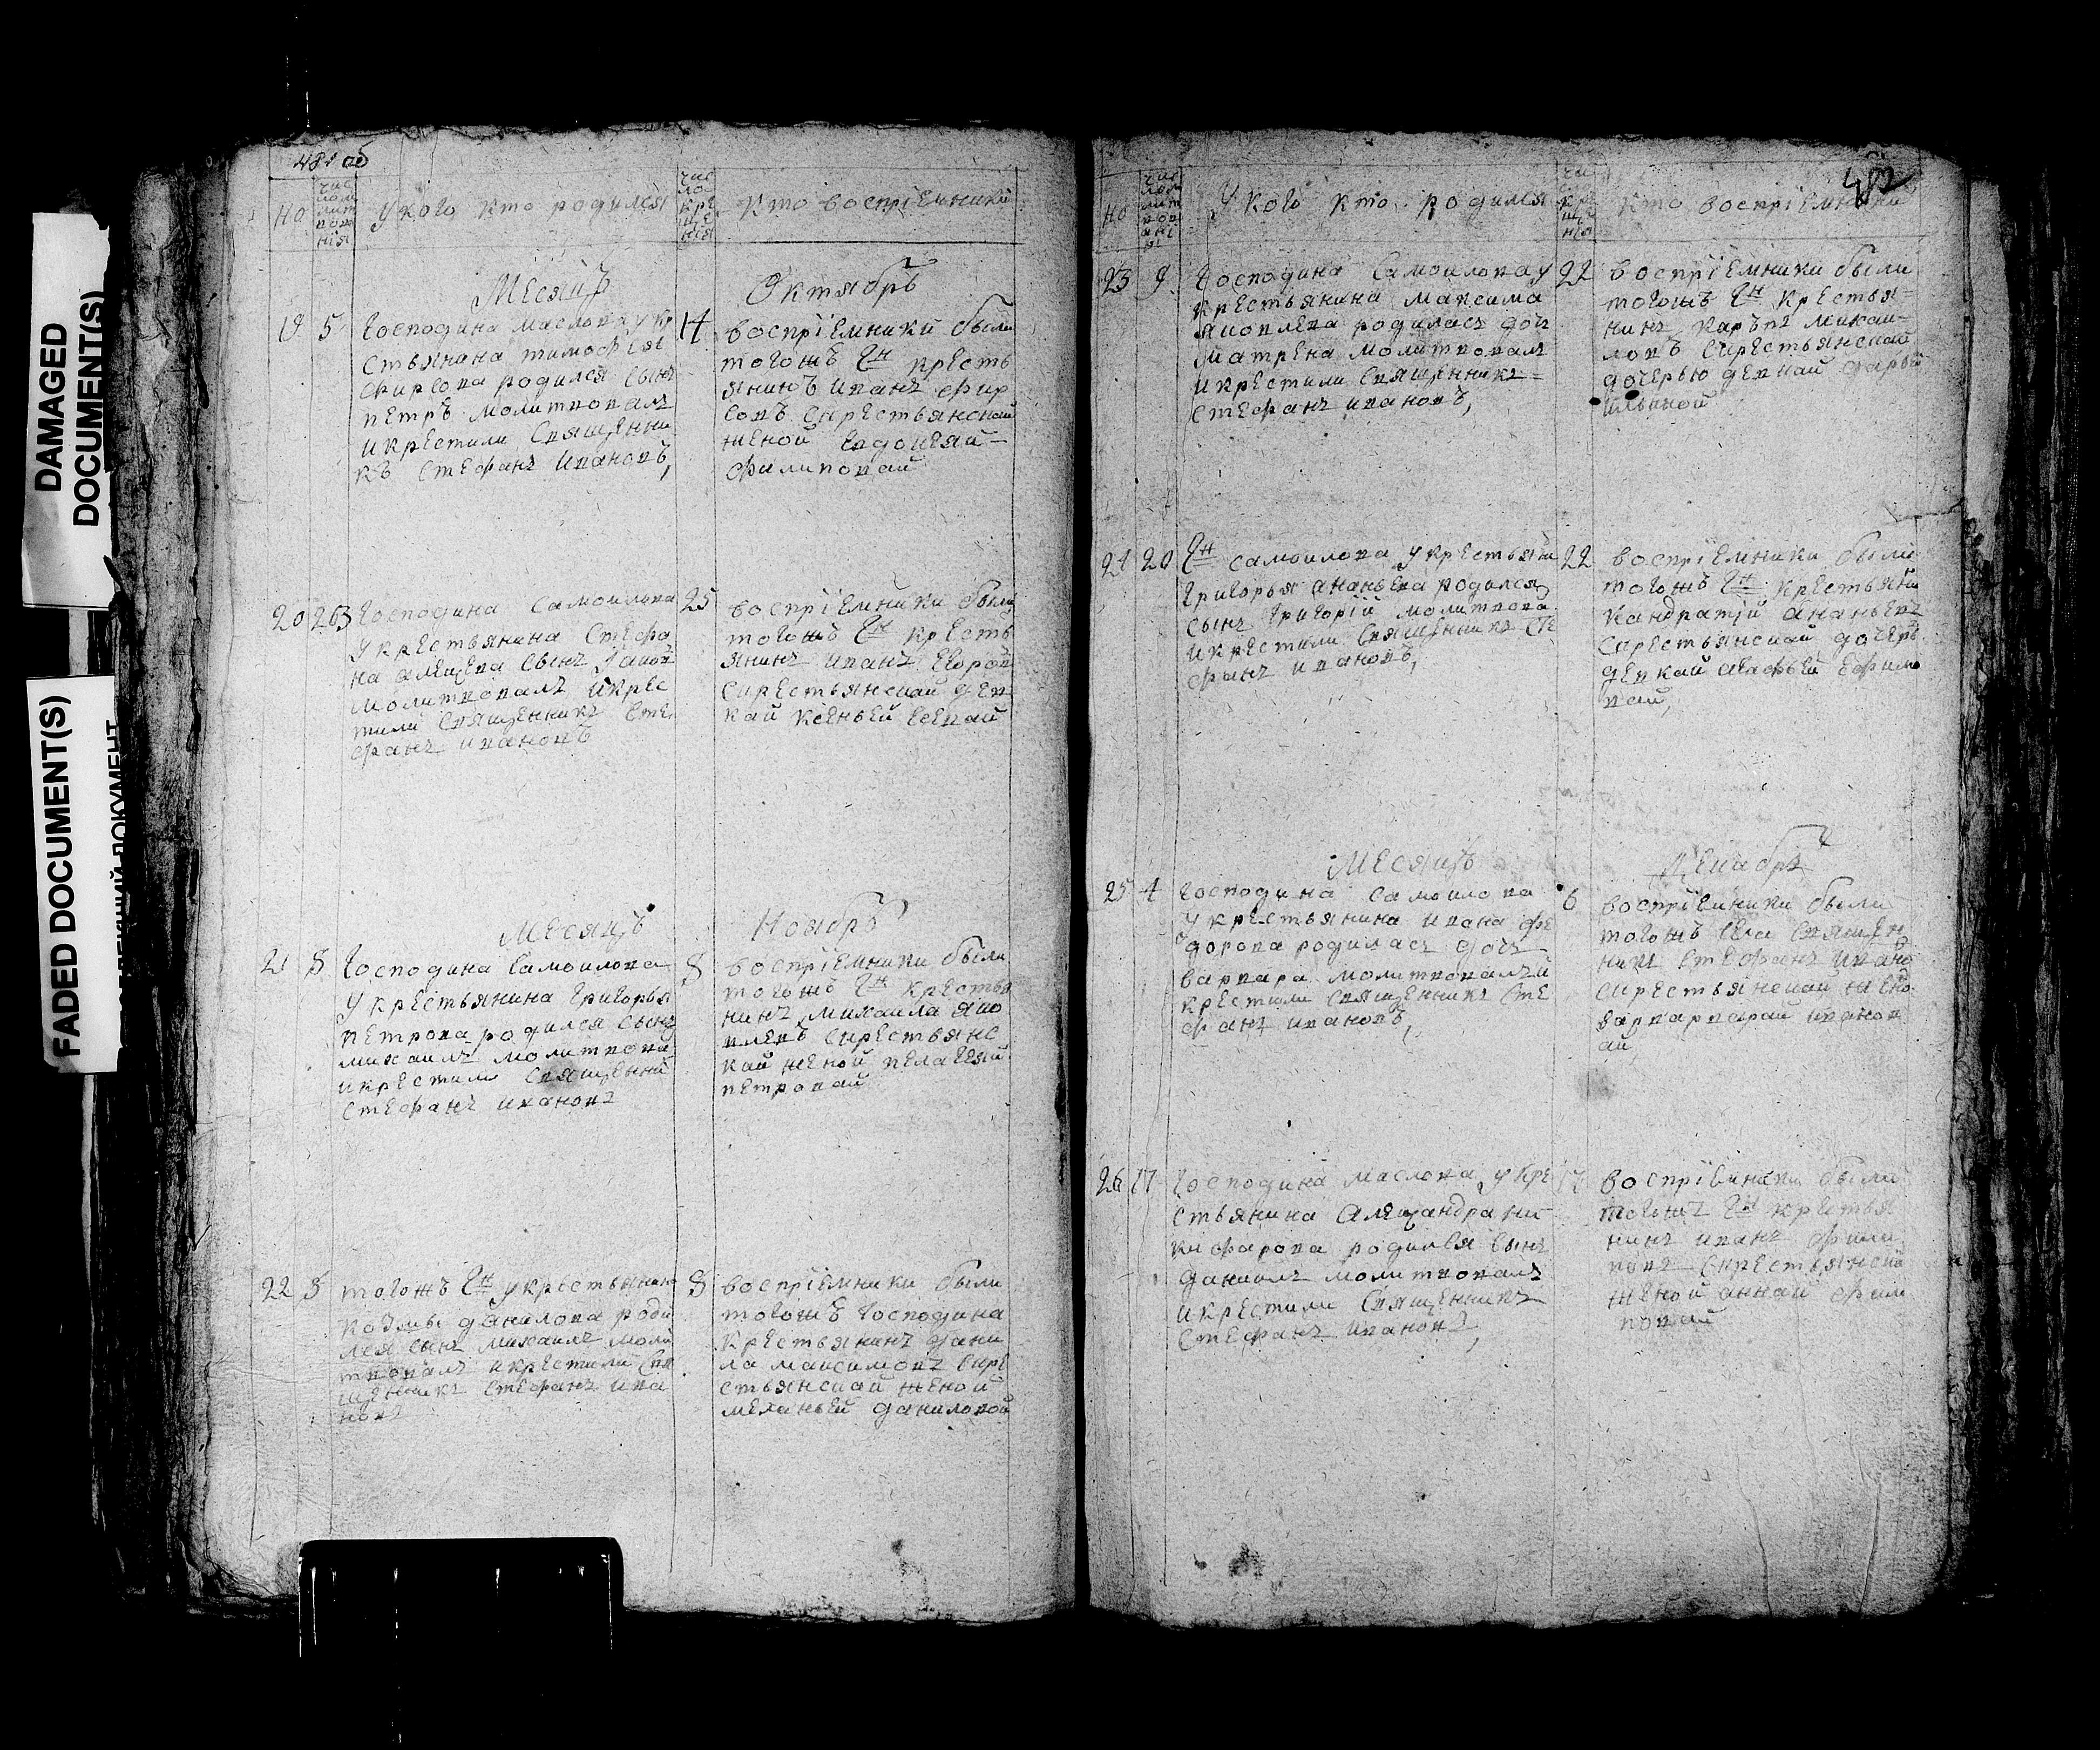 DAMAGED
DOCUMENT(S)
FADED DOCUMENT(S)
ДОКУМЕНТ
481 об
но
чис
лом
лит
вов
нія
У кого кто родился
чис
ло
кре
ще
нія
Кто воспріемники
Месяцъ Октябрь
19 5 Господина Маслова у кр
стьянина тимофея
фирсова родился сынъ
петръ молитвовалъ
и крестилъ Священни
къ Стефанъ Ивановъ,
14 воспріемники были
тогожъ гн кресть
янинъ иванъ фир
совъ Скрестьянской
женой Евдокеяй
филиповай
20 263 Господина Самоилова
у крестьянина Стефа
на алкцева сынъ
молитвовалъ и крес
тили Священникъ Сте
фанъ ивановъ
25 воспріемники были
тогожъ гн кресть
янинъ иванъ Егоров
Скрестьянскай дев
кай ксеньей
Месяцъ Ноябрь
21 8 Господина Самоилова
у крестьянина Григорья
петрова родился сынъ
михаилъ молитвова
и крестили Священи
Стефанъ ивановъ
8 воспріемники были
тогожъ гн крестья
нинъ михаила яко
влевъ Скрестьянс
кай женой пелагеяй
петровай
22 8 тогожъ гн у крестьянина
козмы данилова роди
лся сынъ михаилъ моли
твовалъ и крестили Свя
щенникъ Стефанъ ива
новъ
8 воспріемники были
тогожъ Господина
крестьянинъ дани
ла максимовъ Скре
стьянскай женой
меланьей даниловой
482
но
чис
лом
лит
вов
ані
я
У кого кто родился
Кто воспріемники
23 9 Господина Самоилова у
крестьянина Максима
яковлева родилась доч
матрена молитвовалъ
и крестили Священникъ
Стефанъ ивановъ,
22 воспріемники были
тогожъ гн крестья=
нинъ карпъ михаи=
ловъ Скрестьянской
дочерью девкай дарьей
ильиной
24 20 гн Самоилова у крестьяни
Григорья ананьева родился
сынъ Григорій молитвова
и крестили Священникъ Сте
фанъ ивановъ,
22 воспріемники были
тогожъ гн крестьяни
кандратій ананьевъ
Скрестьянскай дочерь
девкай агафьей Ефимо
вай,
Месяцъ Декабрь
25 4 Господина Самоилова
у крестьянина ивана фе
дорова родилась дочъ
варвара молитвовалъ и
крестили Священникъ Сте
фанъ ивановъ,
6 воспріемники были
тогожъ Села Священ
никъ Стефанъ ивано
Скрестьянскай жено
варварварай иванов
ай,
26 17 Господина маслова у кре
стьянина Александра ни
кифарова родился сынъ
данилъ молитвовалъ
и крестили Священникъ
Стефанъ ивановъ,
17 воспріемники были
тогожъ гн крестья
нинъ иванъ фили
повъ Скрестьянска
женой аннай фили
повай